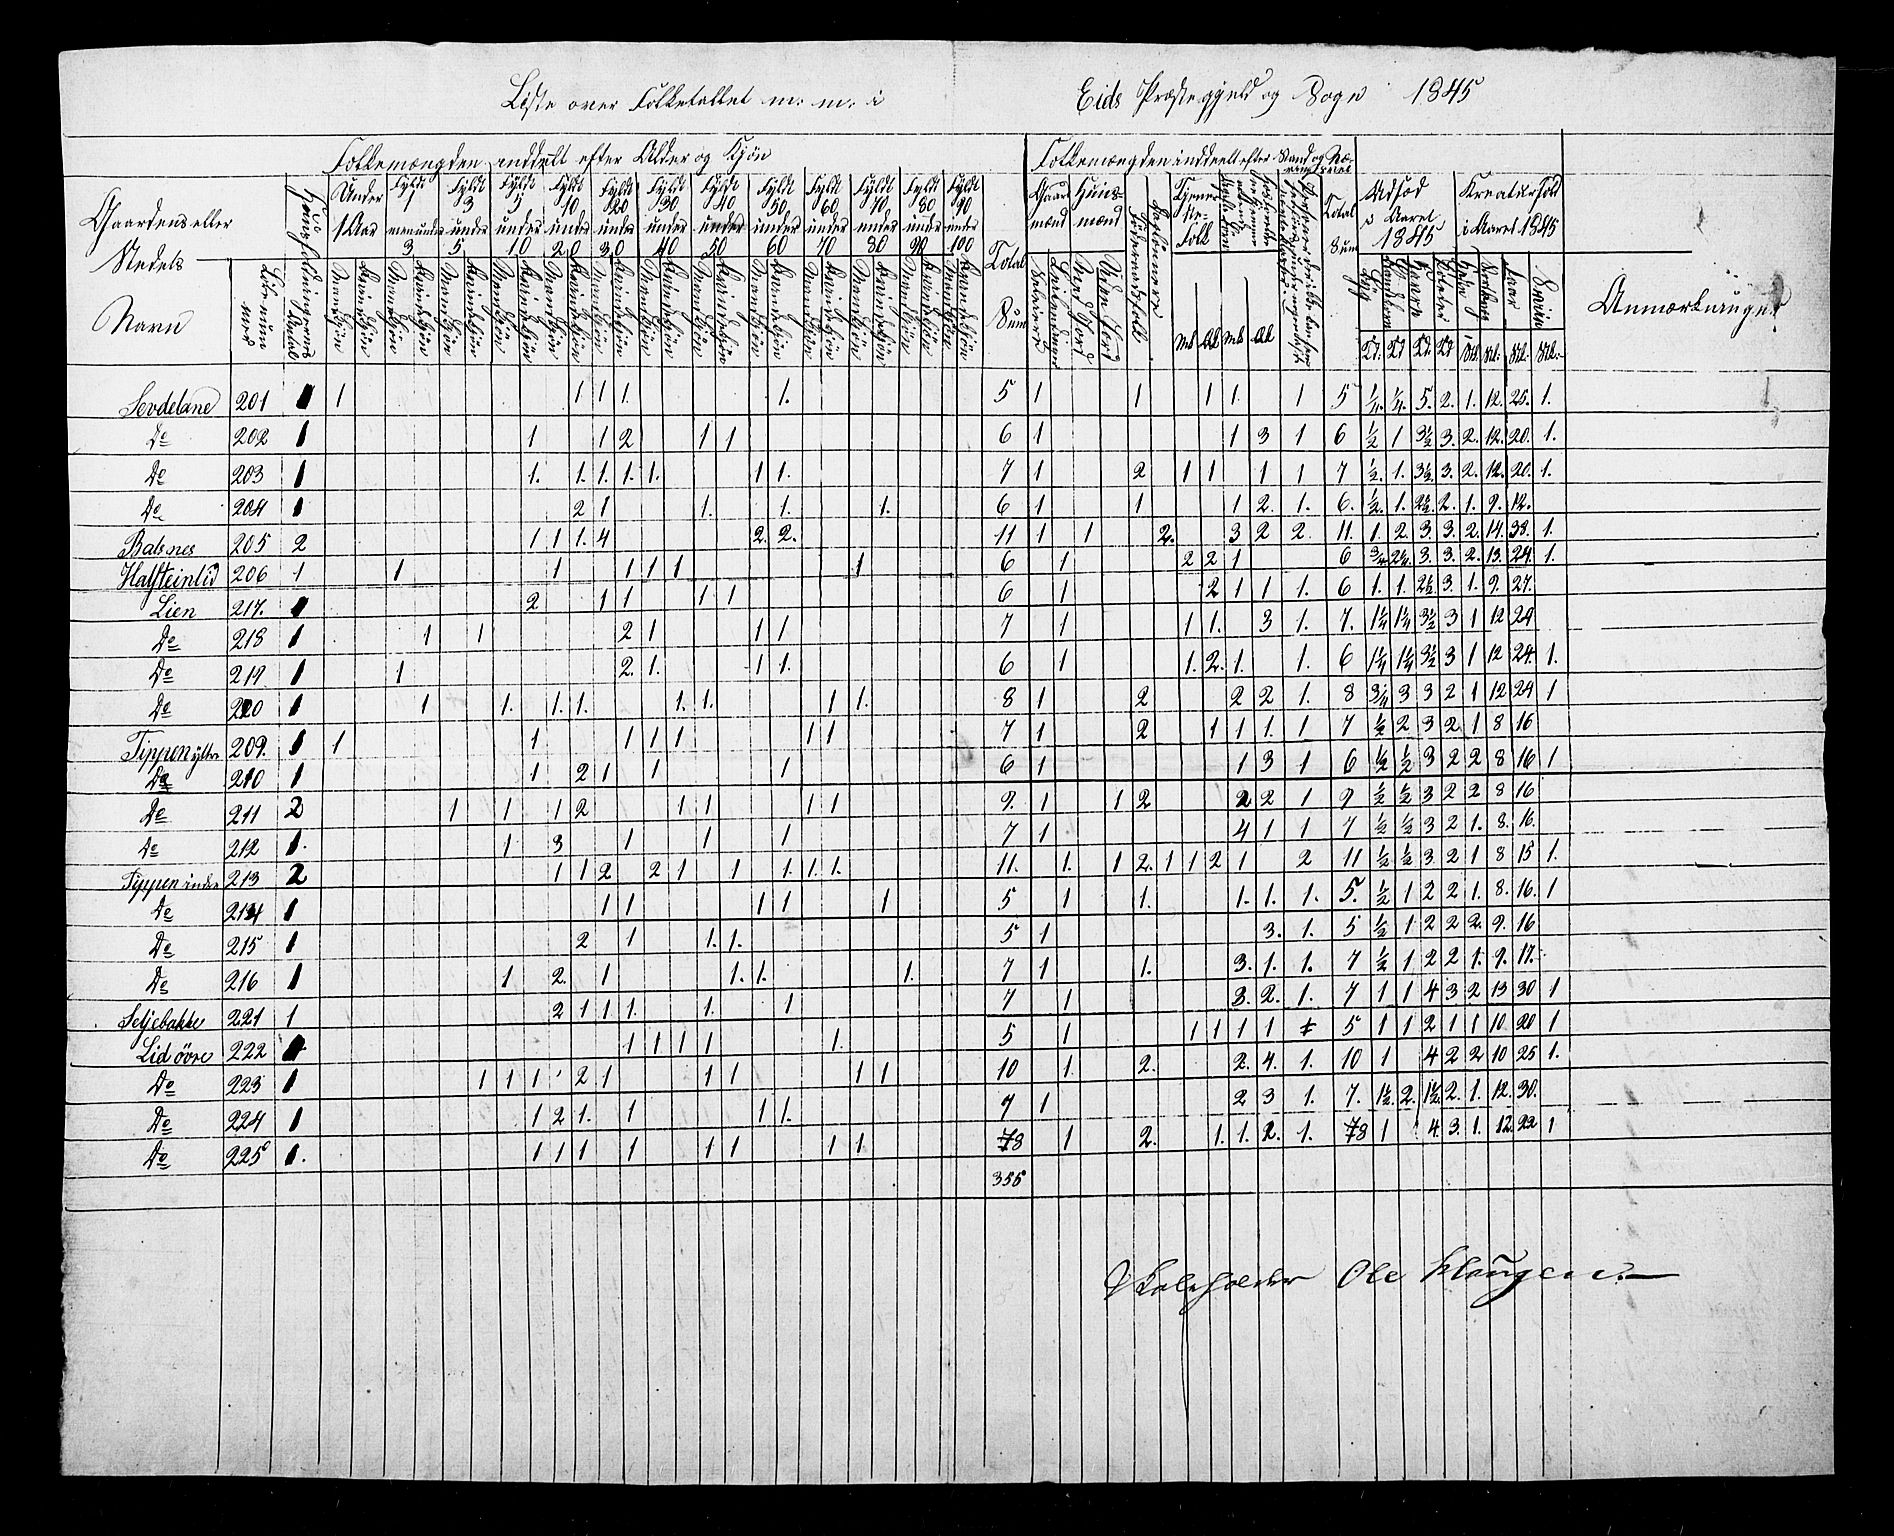 Liste over Folketallet m: m: i Eids Præstegjeld og Sogn 1845
Folkemængden inddelt efter Alder og Kjøn
Folkemængden inddeelt efter Stand og
Gaardens eller
Navn
Under 1 Aar
Fyldt 1 men under 3
Fyldt 3 under 5
Fyldt 5 under 10
Fyldt 10 under 20
Fyldt 20 under 30
Fyldt 30 under 40
Fyldt 40 under 50
Fyldt 50 under 60
Fyldt 60 under 70
Fyldt 70 under 80
Fyldt 80 under 90
Fyldt 90 under 100
Total Sum
Gaard mænd
Huus mænd
Tjeneste Folk
Total Sum
Udsæd i Aaret 1845
Kreaturhold i Aaret 1845
Anmærkninger
Sevdelane 201 1 1 1 1 1. 1. 5 1 1 1 1. 1 5 1/4. 1/4. 5. 2. 1. 12. 25. 1.
Do 202 1 1 1 2 1 1 6 1 1 3 1 6 1/2 1 3 1/2 3. 2. 12. 20. 1.
Do 203 1 1. 1. 1. 1. 1. 1 1. 7 1 2 1 1 1 1 7 1/2. 1. 3 1/2 3. 2. 12. 20. 1.
Do 204 1 2 1 1. 1. 1. 6 1 1 1 2. 1. 6. 1/2. 1. 2 1/2 2. 1. 9. 12.
Balsnes 205 2 1 1 1. 4 2. 2. 11 1 1 2. 3 2 2. 11. 1. 2. 3. 3. 2. 14. 38. 1.
Halsteinlid 206 1 1 1 1 1 1 1 6 1 2 2 1 6 3/4 2 1/4. 3. 3. 2. 13. 24. 1.
Lien 217. 1 2 1 1 1 1 6 1 2 1 1 1. 6 1. 1. 2 1/2 3. 1. 9. 27.
Do 218 1 1 1 2 1 1 1 7 1 1 1. 3 1. 7. 1 1/4 1 1/4 3 1/2 3 1 12 24
Do 219 1 1 2. 1. 1 1. 6 1 1. 2. 1. 1. 6 1 1/4 1 1/4 3 1/2 3 1 12 24. 1.
Do 220 1 1 1. 1. 1. 1 1. 1 1. 8 1 2 2 2 1. 8 3/4 3 3 2 1 12 24 1
Tippen yttre 209. 1 1 1 1 1 1 1 1 7 1 2 1 1 1. 1 7 1/2 2 3 2 1 8 16
Do 210 1 1 2 1 1 1 6 1 1 3 1 6 1/2 1/2 3 2 2 8 16 1
Do 211 2 1 1 1 2 1 1 1 1 9. 1 1 2 2 2 1 9 1/2 1/2 3 2 2 8 16
Do 212 1. 1 3 1 1 1 7 1 4 1 1 7 1/2 1/2 3 2 1. 8. 16.
Tippen indre 213 2 1 1 2 2 1 1 1. 1. 1. 11. 1. 1 2. 1 1 2 1 2 11 1/2 1/2 3. 2 1 8 15 1.
Do 214 1 1 1 1 1 1 5 1 1. 1. 1. 1. 5. 1/2 1 2 2 1. 8. 16. 1
Do 215 1 2 1 1. 1. 5 1 3. 1. 5 1/2 1 2 2 2. 9. 16
Do 216 1 1 2. 1 1. 1. 1. 7 1 1. 3. 1. 1. 7 1/2 1 2 2 1. 9. 17.
Seljebakke 221 1 2 1 1 1. 1. 1 7 1 3. 2. 1. 7 1 1 4 3 2 13 30 1
Lid övre 222 1 1 1 1 1 1. 5 1 1 1 1 1 5 1 1 2 1 1 10 20 1
Do 223 1 1 1 1 2 1 1 1 1 1 10 1 2. 2. 4. 1. 10 1 4 2 2 10 25 1.
Do 224 1 1 2 1. 1 1 1. 7 1 2 3 1. 7. 1 1/2 2. 1 1/2 2. 1. 12. 30.
Do 225 1. 1 1 1 1 1 1 1 1. 8 1 2. 1. 1. 2. 1. 8 1 4. 3. 1. 12 22 1
355
Skoleholder Ole Haugen